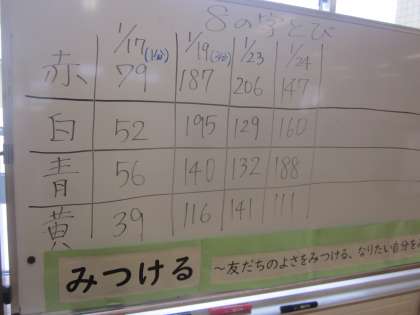 8の字とび
1/17 1/19 1/23 1/24
赤 79 187 206 147
白 52 195 129 160
青 56 140 132 188
黄 39 116 141 111
みつける
～友だちのよさをみつける、なりたい自分を